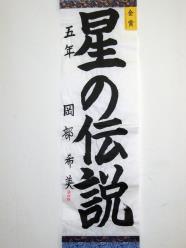 金賞
星の伝説
五年 岡部希美